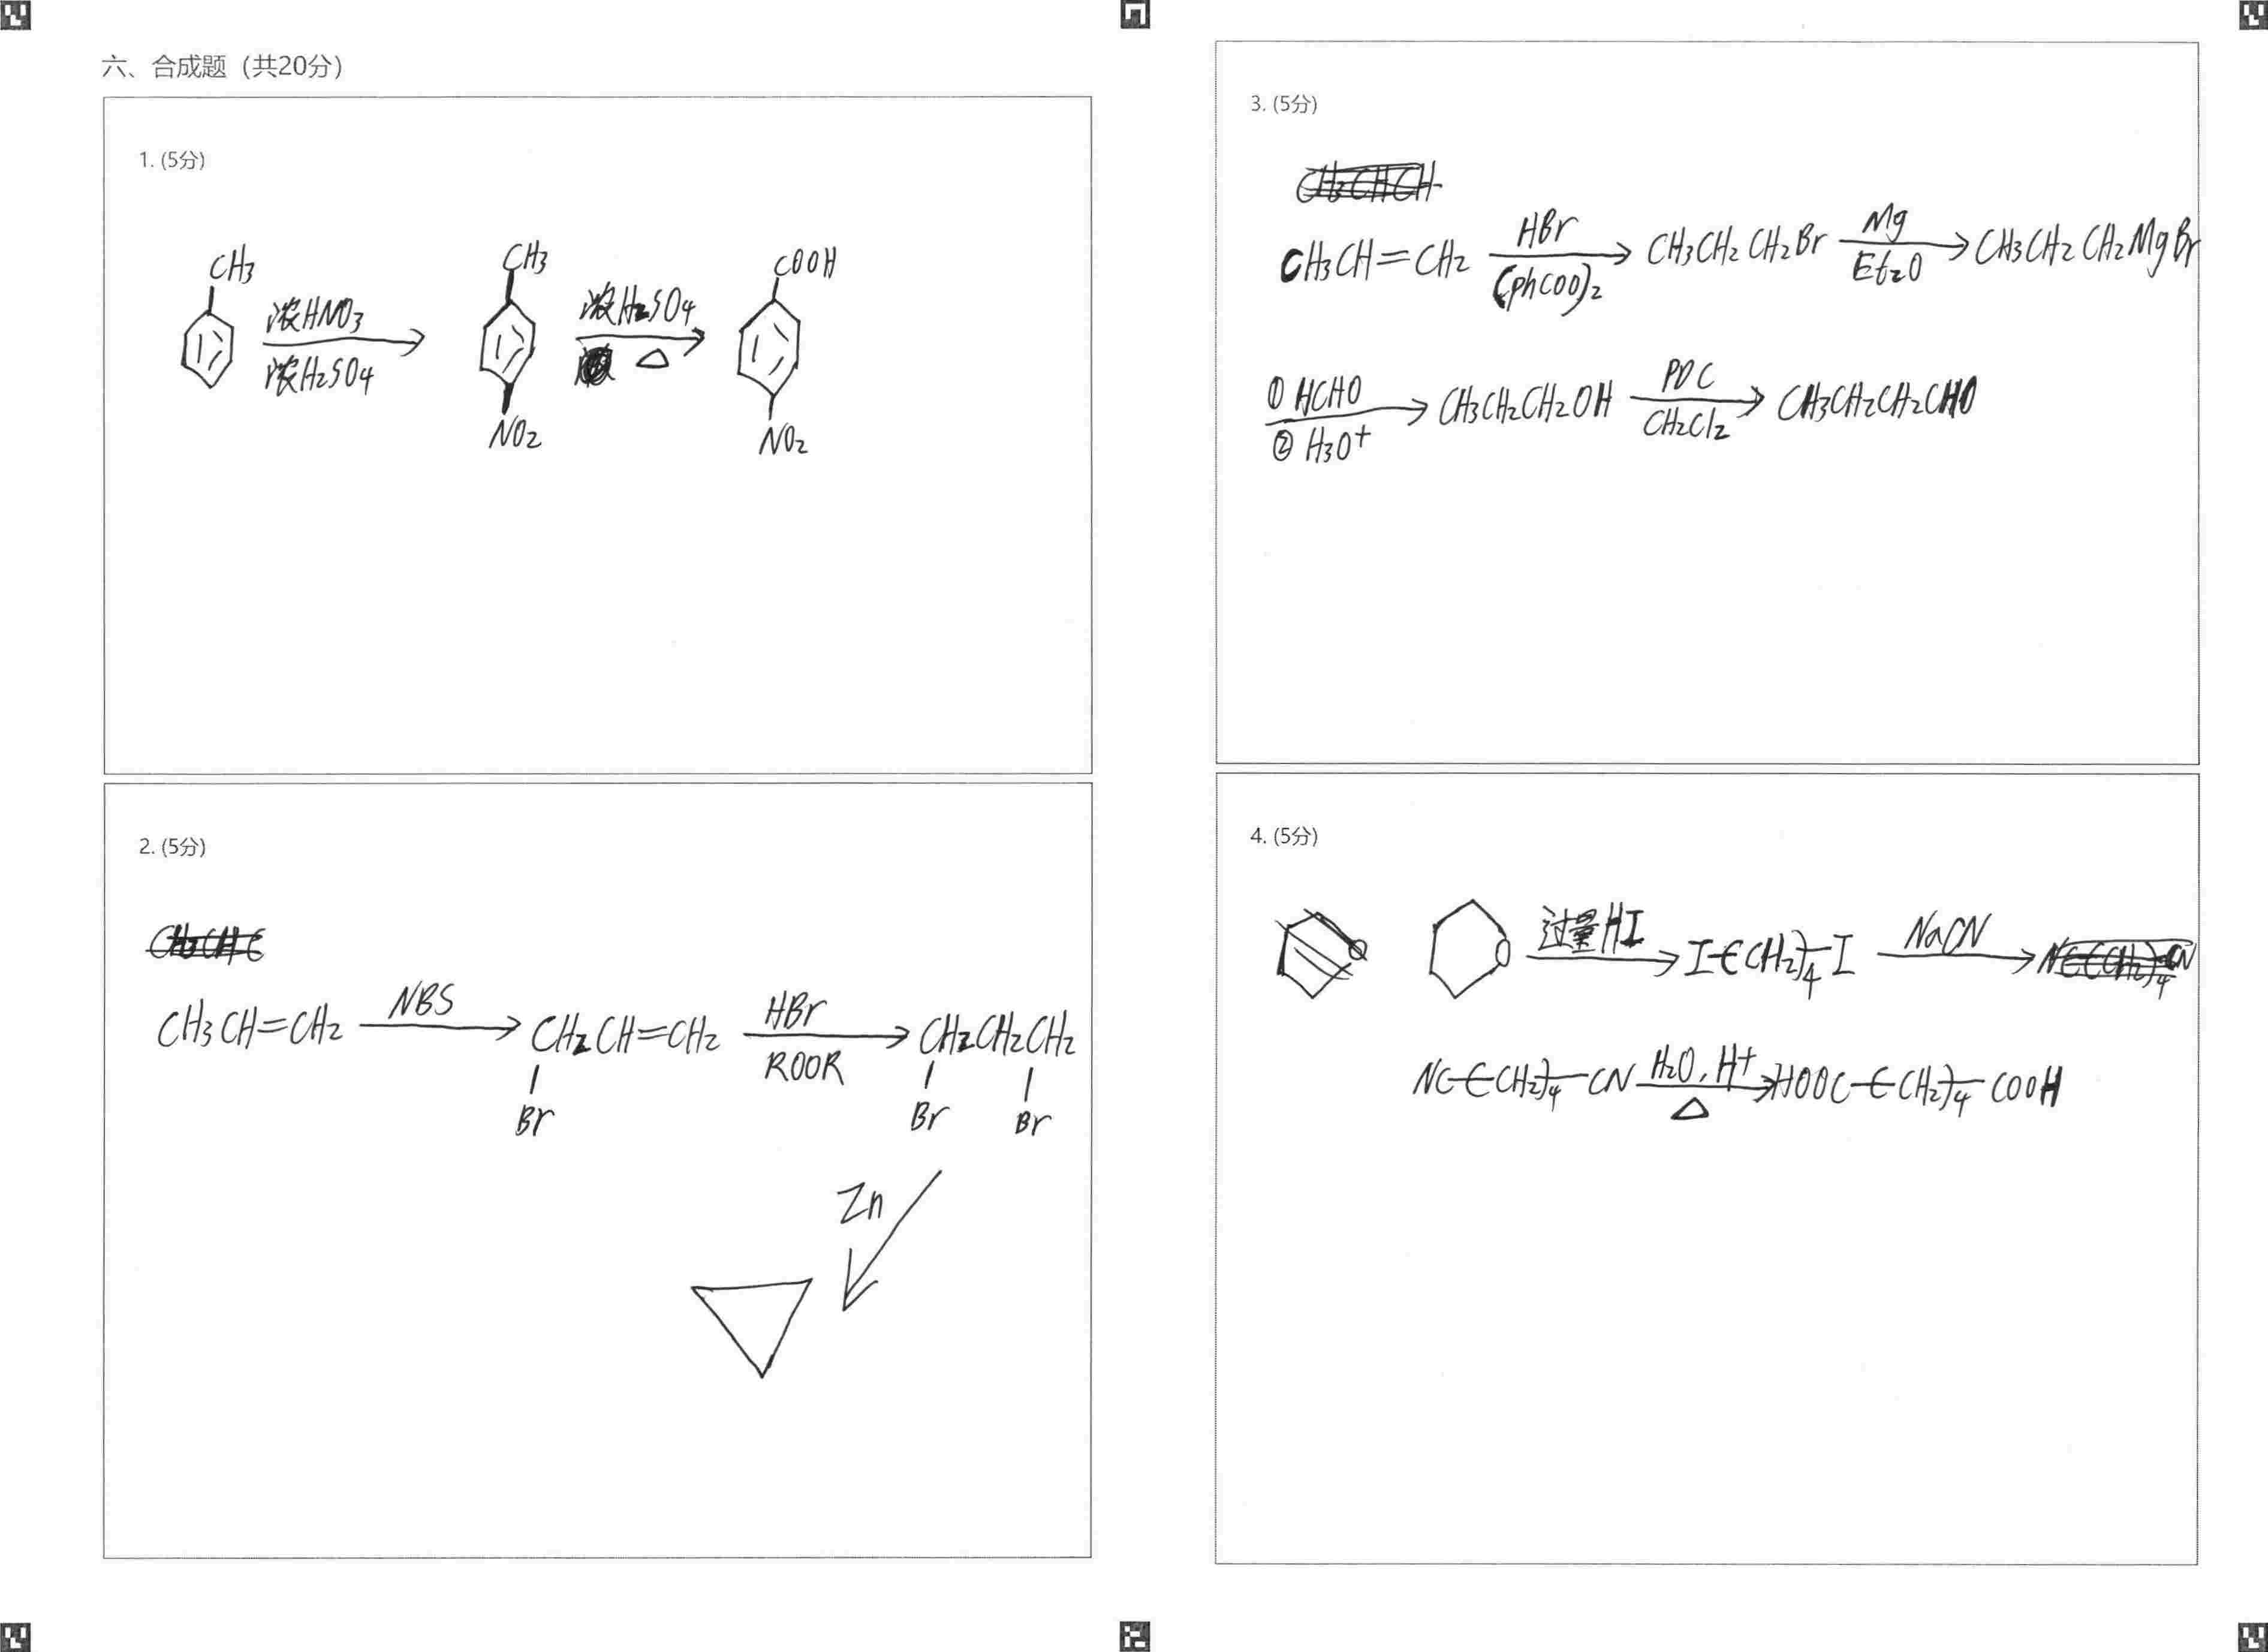 六、合成题（共20分）
1. (5分)
CH3
浓HNO3
浓H2SO4
CH3
NO2
浓H2SO4
△
COOH
NO2
2. (5分)
CH3CH=CH2
NBS
CH2CH=CH2
Br
HBr
ROOR
CH2CH2CH2
Br
Br
Zn
3. (5分)
CH3CH=CH2
HBr
(PhCOO)2
CH3CH2CH2Br
Mg
Et2O
CH3CH2CH2MgBr
① HCHO
② H3O+
CH3CH2CH2OH
PDC
CH2Cl2
CH3CH2CH2CHO
4. (5分)
O
过量HI
I-(CH2)4-I
NaCN
NC-(CH2)4-CN
H2O, H+
△
HOOC-(CH2)4-COOH